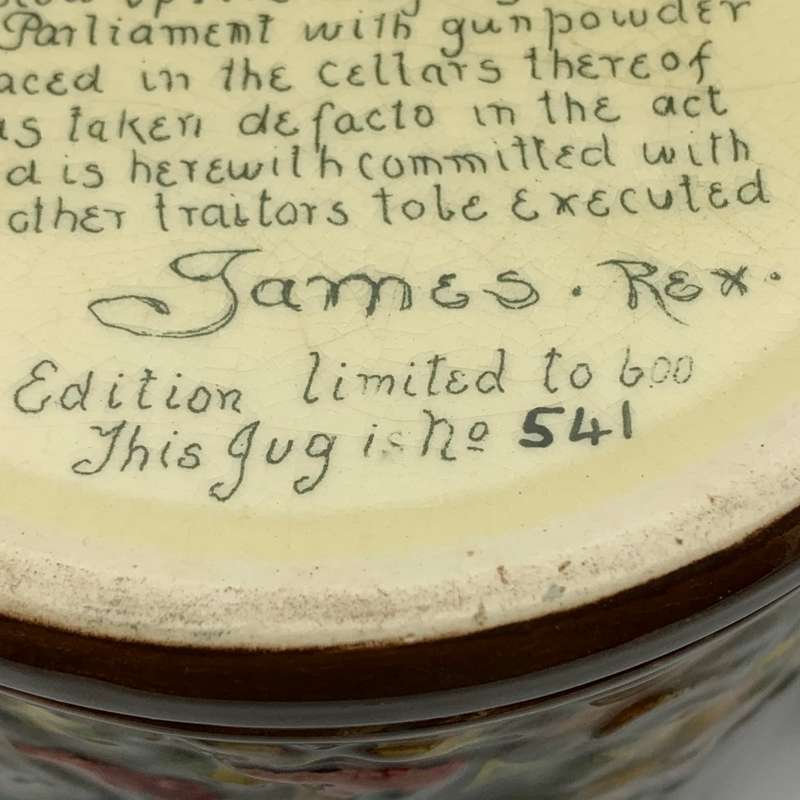 Parliament with gunpowder
aced in the cellars thereof
as taken defacto in the act
d is herewith committed with
other traitors tobe executed
James. Rex.
Edition limited to 600
This Jug is No 541